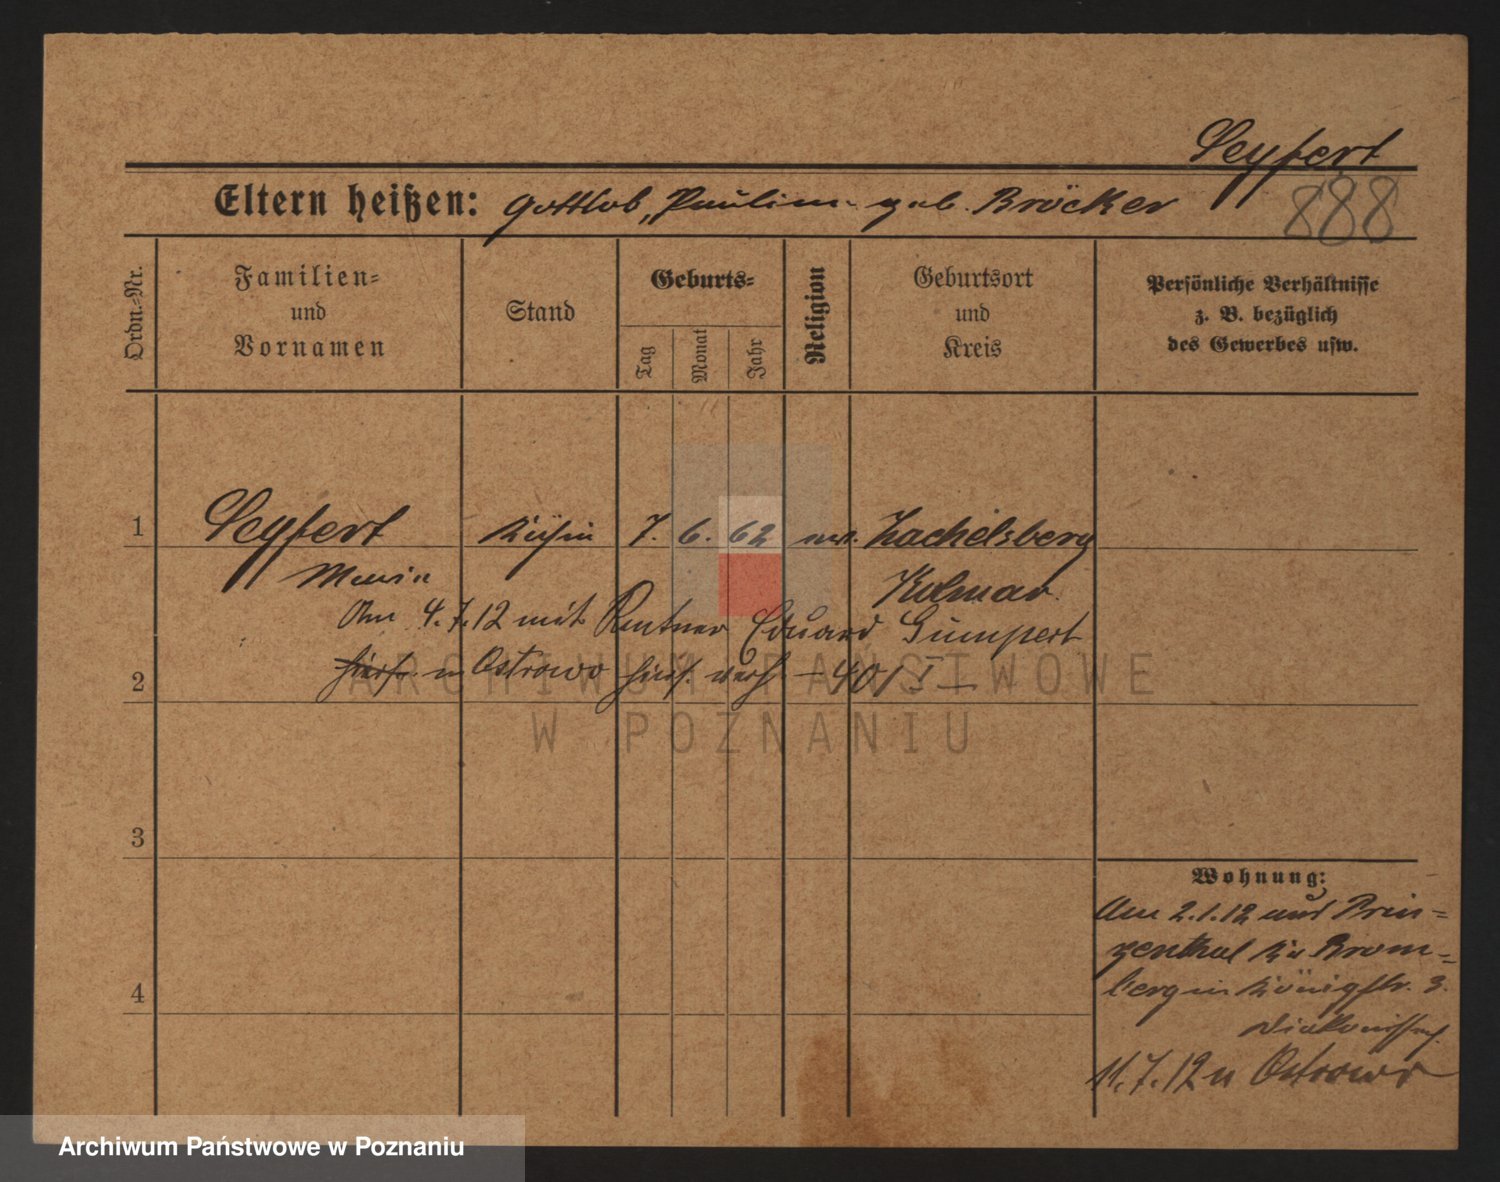 Seyfert
Eltern heißen: Gottlob, Pauline geb. Bröcker
888
Ordn.-Nr.
Familien-
und
Vornamen
Stand
Geburts-
Tag
Monat
Jahr
Religion
Geburtsort
und
Kreis
Persönliche Verhältnisse
z. B. bezüglich
des Gewerbes usw.
1
Seyfert
7. 6. 62
Zachelsberg
Marie
Kolmar
Am 4.7.12 mit Rentner Eduard Gumpert
2
in Ostrowo hies. verh. — 40/
ARCHIWUM PAŃSTWOWE
W POZNANIU
3
Wohnung:
Am 2.1.12 aus Prin-
zenthal Kr. Brom-
berg in Königstr. 3.
4
11.7.12 n Ostrowo
Archiwum Państwowe w Poznaniu